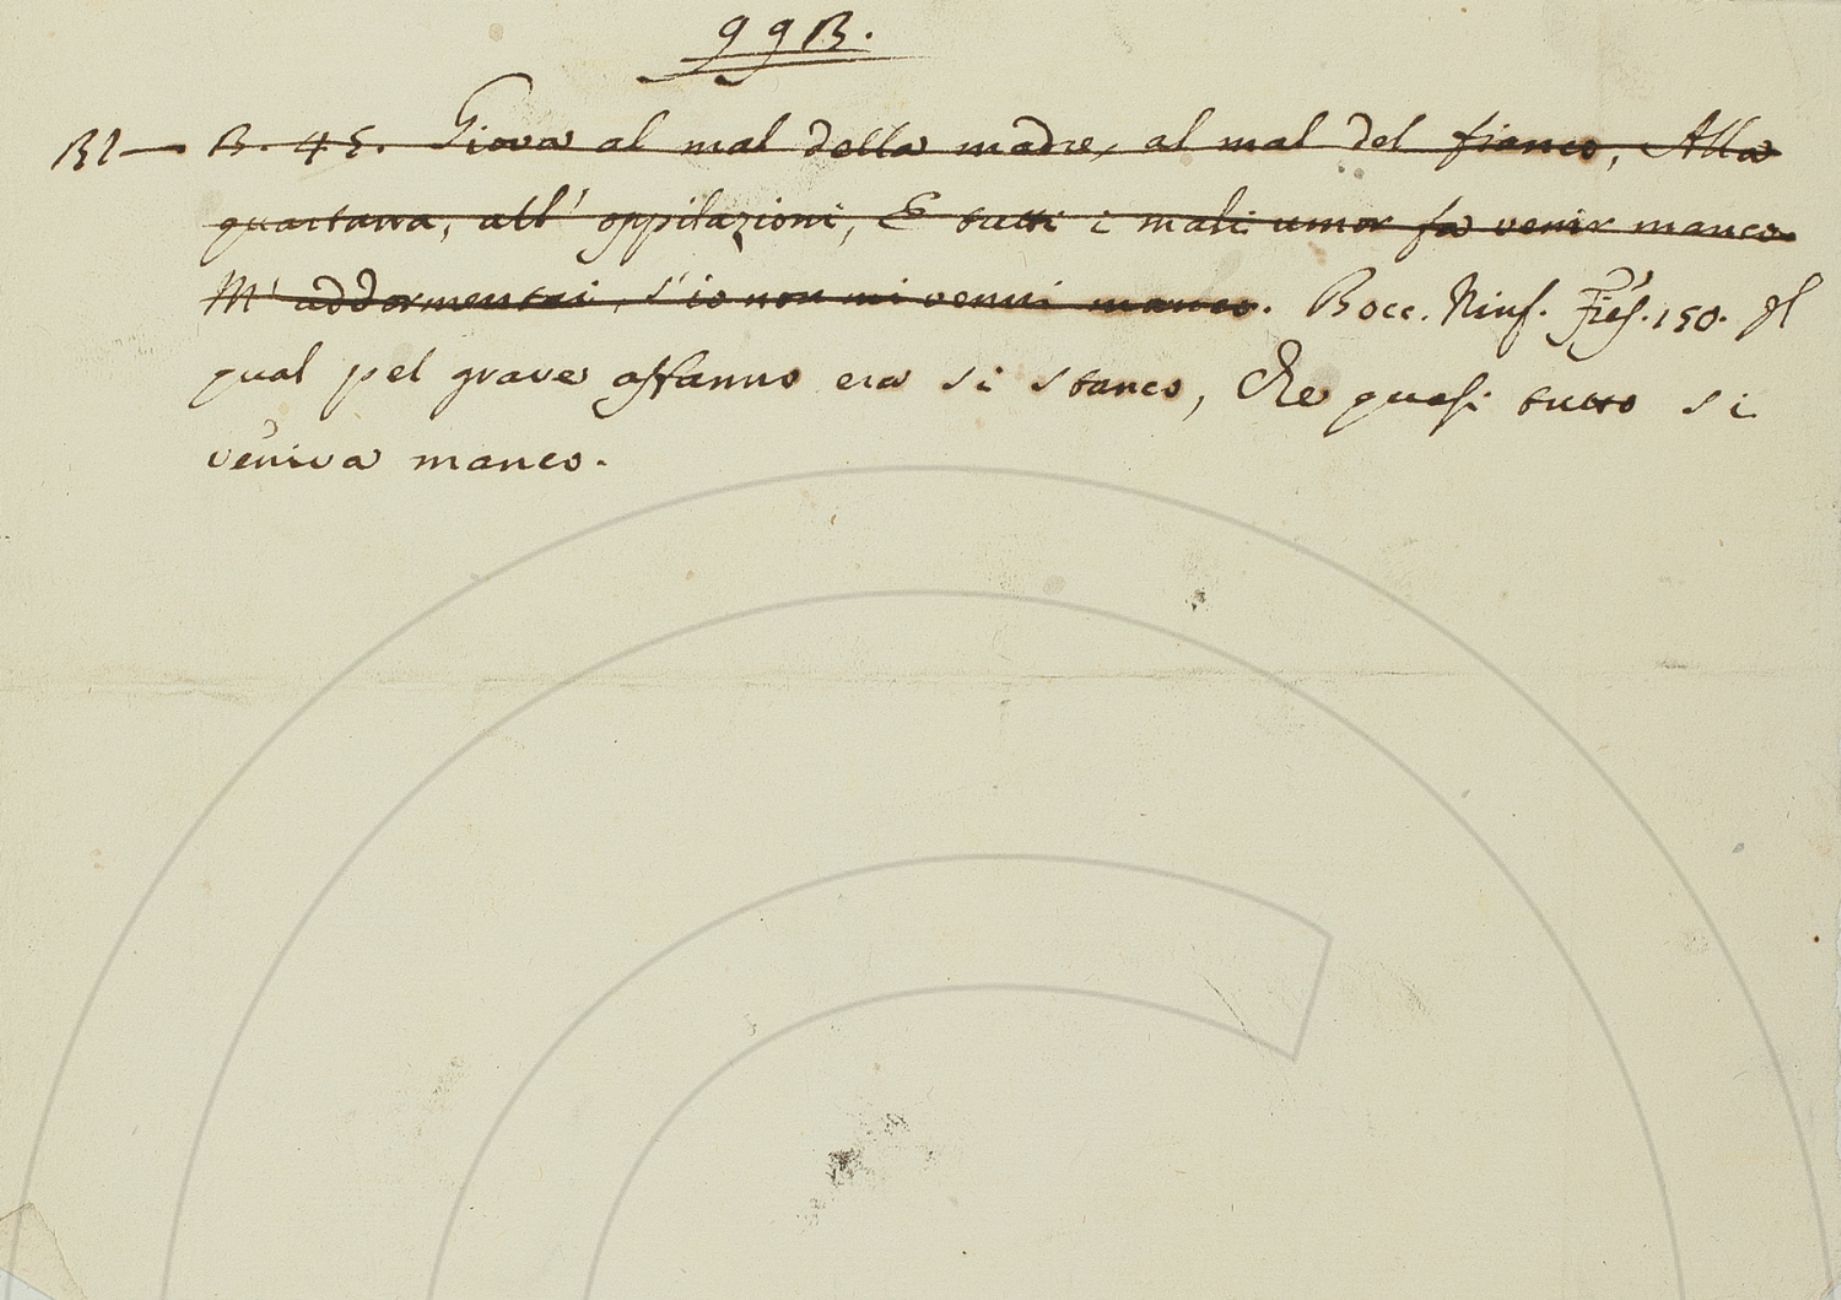 99B.
Bl — B. 45. Giova al mal della madre, al mal del fianco, Alla
quartana, all' oppilazioni, E tutti i mali umor fa venir manco.
M' addormentai, s'io non mi venni manco. Bocc. Ninf. Fies. 150. Il
qual pel grave affanno era si stanco, Che quasi tutto si
veniva manco.